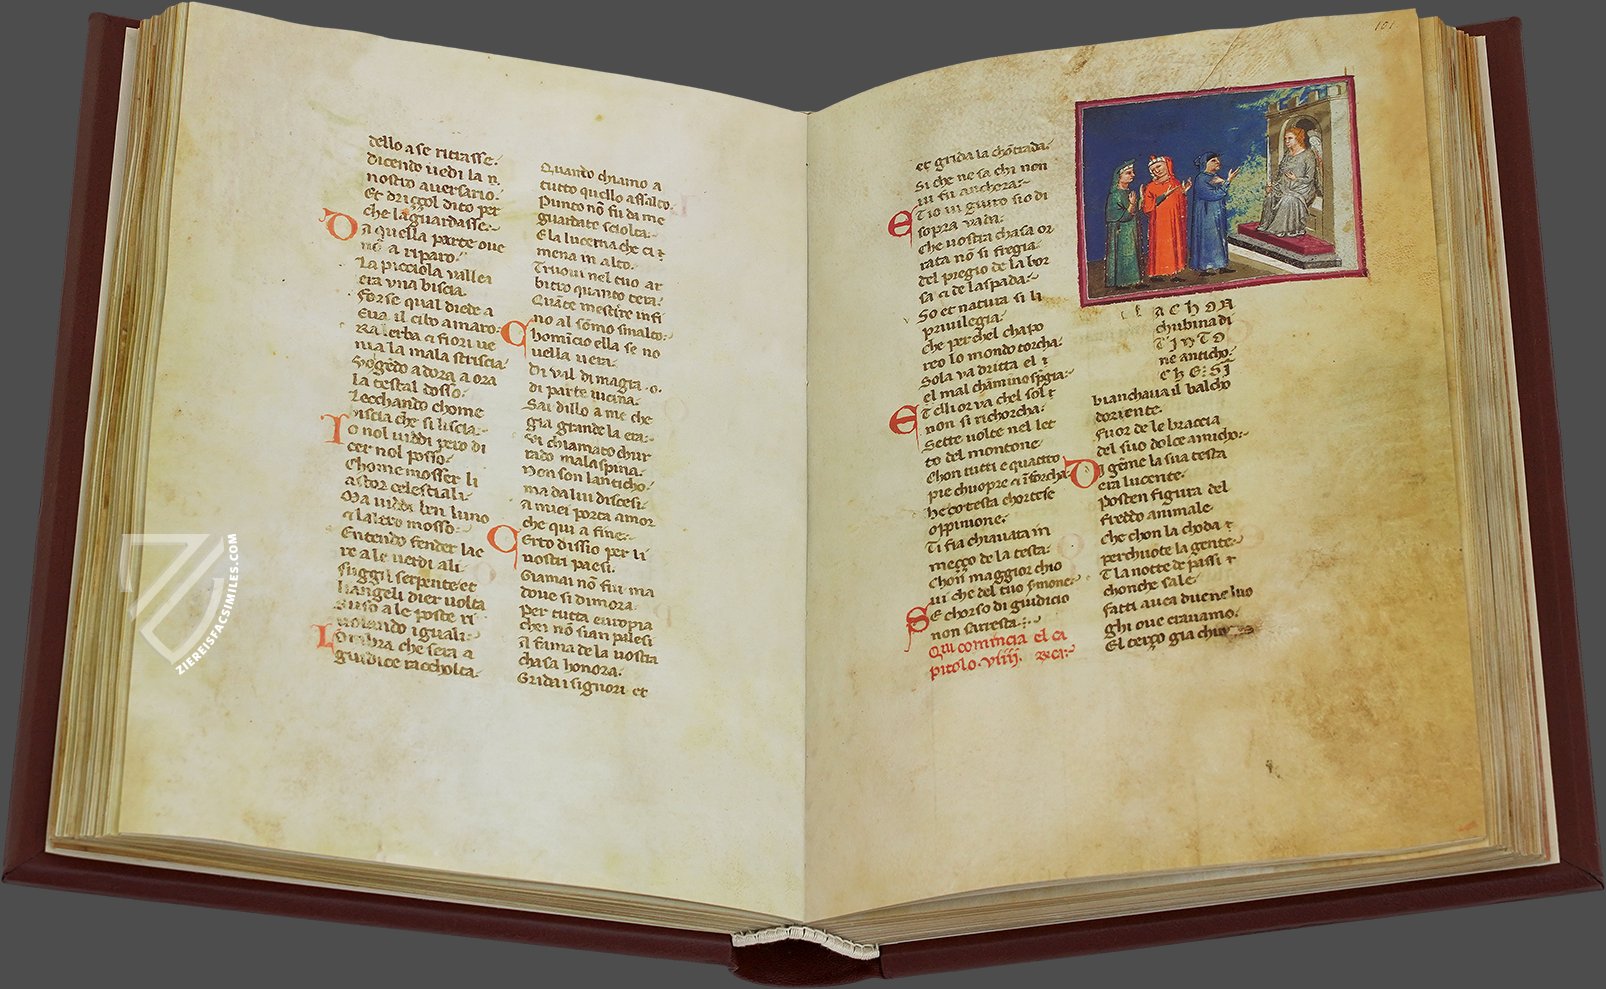 dello a se ritrasse.
dicendo uedi la n.
nostro auersario.
Et driççol dito per
che la guardasse.
Da quella parte oue
nō a riparo.
La picciola uallea
era vna biscia.
forse qual diede a
Eua il cibo amaro.
Tra lerba & fiori ue
nia la mala striscia
la testal dosso.
Lecchando chome
biscia che si liscia.
Io nol uiddi pero di
cer nol posso.
Chome mosser li
astor celestiali.
Ma uiddi ben luno
& laltro mosso.
Sentendo fender lae
re a le uerdi ali.
fuggil serpente et
liangeli dier uolta
Suso a le poste ri
uolando iguali.
Lombra che sera a
giudice racholta.
Quando chiamo a
tutto quello assalto.
Punto nō fu di me
guardare sciolta.
Se la lucerna che ti
mena in alto.
Truoui nel tuo ar
bitro quanto cera.
Quāte mestire infi
no al sōmo smalto.
Chomīcio ella se no
uella uera.
di val di magra o
di parte uicina.
Sai dillo a me che
gia grande la era.
fui chiamato chur
rado malaspina.
Non son lanticho.
ma da lui discesi.
a miei porta amor
che qui a fine.
Certo dissio per li
uostri paesi.
Giamai nō fui ma
doue si dimora.
per tutta europia
chei nō sian palesi
La fama de la uostra
chasa honora.
Grida i signori et
et grida la chōtrada.
Si che ne sa chi non
ui fu anchora.
Et io ui giuro sio di
sopra vada.
Che uostra chasa or
rata nō si fregia.
del pregio de la bor
sa & de la spada.
So et natura si li
priuilegia.
che perchel chapo
reo lo mondo torcha.
Sola va dritta el
el mal chāmino spregia.
Et elli or va chel sol
non si richorcha.
Sette uolte nel let
to del montone
Chon tutti e quattro
pie chuopre & īforcha.
he cotesta chortese
oppinione.
Ti fia chiauata in
meçço de la testa.
Chon maggior chio
ui che del tuo sermone.
Se chorso di giudicio
non sarresta.
Qui comincia el ca
pitolo. viiii.
101
LA CHON
chubina di
TINTO
ne anticho.
CHE SI
bianchaua il balcho
doriente.
fuor de le braccia
del suo dolce amicho.
Di gēme la sua testa
era lucente.
posten figura del
freddo animale.
Che chon la choda
perchuote la gente.
La notte de passi
chonche sale.
fatti auea due ne luo
ghi oue erauamo.
El terço gia chi
ZIEREISFACSIMILES.COM